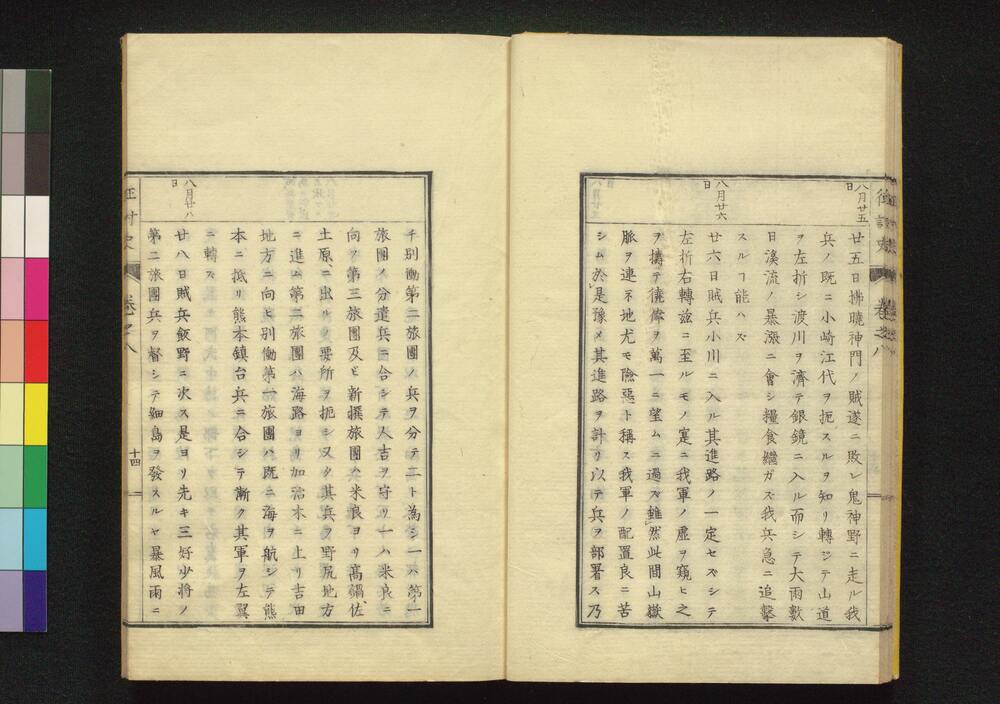 征討史 卷之八
八月廿五日
廿五日拂曉神門ノ賊遂ニ敗レ鬼神野ニ走ル我
兵ノ既ニ小崎江代ヲ扼スルヲ知リ轉シテ山道
ヲ左折シ渡川ヲ濟テ銀鏡ニ入ル而シテ大雨數
日溪流ノ暴漲ニ會シ糧食繼ガズ我兵急ニ追擊
スルヿ能ハズ
八月廿六日
廿六日賊兵小川ニ入ル其進路ノ一定セズシテ
左折右轉茲ニ至ルモノ寔ニ我軍ノ虛ヲ窺ヒ之
ヲ擣テ僥倖ヲ萬一ニ望ムニ過ズ雖然此間山嶽
脈ヲ連ネ地尤モ險惡ト稱ス我軍ノ配置良ニ苦
シム於是豫メ其進路ヲ計リ以テ兵ヲ部署ス乃
チ別働第二旅團ノ兵ヲ分テ二ト為シ一ハ第一
旅團ノ分遣兵ニ合シテ人吉ヲ守リ一ハ米良ニ
向フ第三旅團及ヒ新撰旅團ハ米良ヨリ高鍋佐
土原ニ出ルノ要所ヲ扼シ又タ其兵ヲ野尻地方
ニ進ム第二旅團ハ海路ヨリ加治木ニ上リ吉田
地方ニ向ヒ別働第一旅團ハ既ニ海ヲ航シテ熊
本ニ抵リ熊本鎮台兵ニ合シテ漸ク其軍ヲ左翼
ニ轉ズ
八月廿八日
廿八日賊兵飯野ニ次ス是ヨリ先キ三好少将ノ
第二旅團兵ヲ督シテ細島ヲ發スルヤ暴風雨ニ
征討史 卷之八 十四